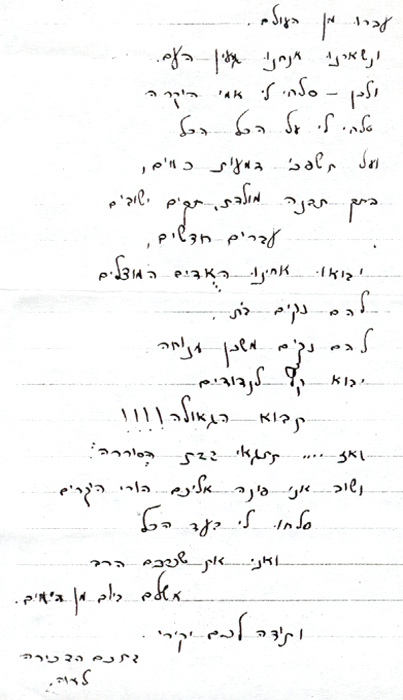 עברו מן העולם.
ונשארנו אנחנו מעין העם.
ולכן – סלחי לי אמי היקרה
סלחי לי על הכל הכל
ועל תשפכי דמעות כמים,
בתך תבנה מולדת, תקים ישובים
עברים חדשים,
יבואו אחינו האודים המוצלים
להם נקים בית.
להם נקים משכן מנוחה.
יבוא קץ לנדודים
תבוא הגאולה!!!!
ואז .... תתגאי בבת הסוררה!
ושוב אני פונה אליכם הורי היקרים
סלחו לי בעד הכל
ואני את שכרכם הרב
אשלם ביום מן הימים.
ותודה לכם יקירי.
בתכם הצעירה
לאה.